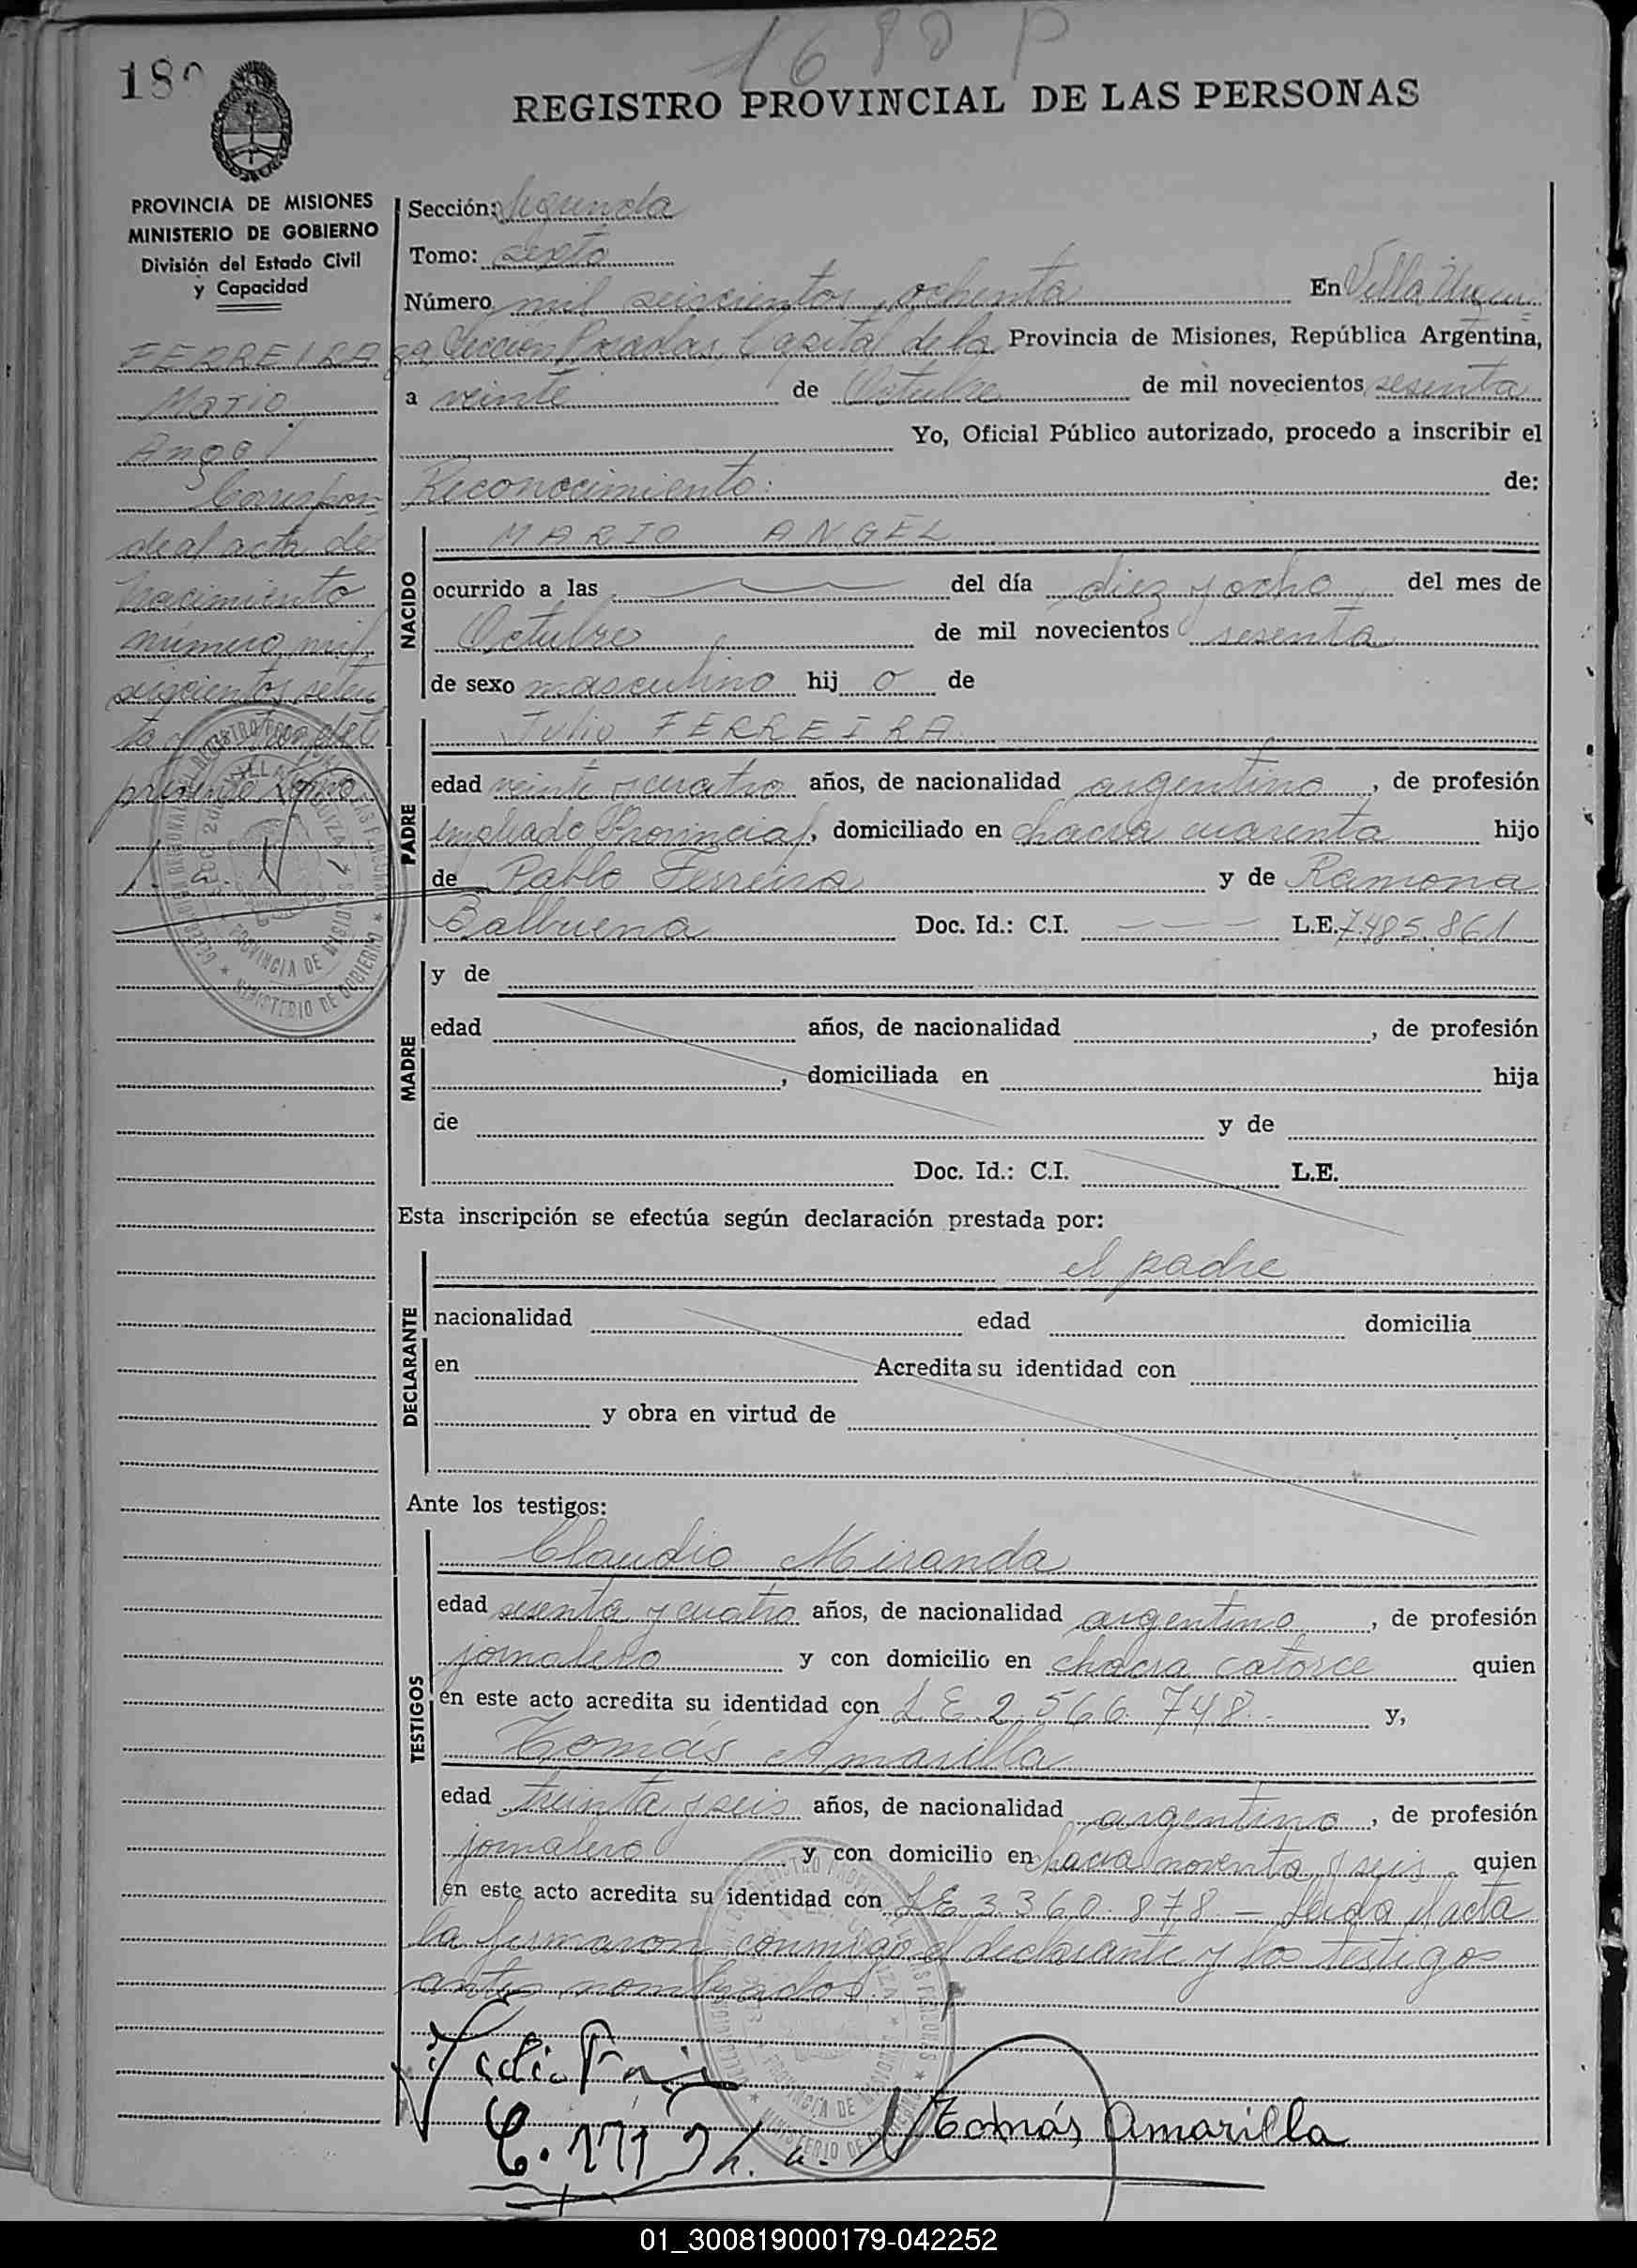 1680 P
REGISTRO PROVINCIAL DE LAS PERSONAS
PROVINCIA DE MISIONES
MINISTERIO DE GOBIERNO
División del Estado Civil
y Capacidad
FERREIRA
Mario
Angel
Correspon=
de al acta de
Nacimiento
número mil
seiscientos seten
ta y
presente tomo
Sección: Segunda
Tomo: sexto
Número mil seiscientos ochenta En Villa Urqui=
za Sección Posadas, Capital de la Provincia de Misiones, República Argentina,
a veinte de Octubre de mil novecientos sesenta
Yo, Oficial Público autorizado, procedo a inscribir el
Reconocimiento: de:
NACIDO
MARIO ANGEL
ocurrido a las del día diez y ocho del mes de
Octubre de mil novecientos sesenta
de sexo masculino hij o de
PADRE
Julio FERREIRA
edad veinte y cuatro años, de nacionalidad argentino, de profesión
empleado Provincial, domiciliado en chacra cuarenta hijo
de Pablo Ferreira y de Ramona
Balbuena Doc. Id.: C.I. — — — L.E. 7.485.861
MADRE
y de
edad años, de nacionalidad , de profesión
, domiciliada en hija
de y de
Doc. Id.: C.I. L.E.
Esta inscripción se efectúa según declaración prestada por:
DECLARANTE
el padre
nacionalidad edad domicilia
en Acredita su identidad con
y obra en virtud de
Ante los testigos:
TESTIGOS
Claudio Miranda
edad sesenta y cuatro años, de nacionalidad argentino, de profesión
jornalero y con domicilio en chacra catorce quien
en este acto acredita su identidad con L.E. 2.566.748.- y,
Tomás Amarilla
edad treinta y seis años, de nacionalidad argentino, de profesión
jornalero y con domicilio en chacra noventa y seis quien
en este acto acredita su identidad con L.E. 3.360.878 — Leída el acta
la firmaron conmigo el declarante y los testigos
antes nombrados.
Tomás Amarilla
01_300819000179-042252